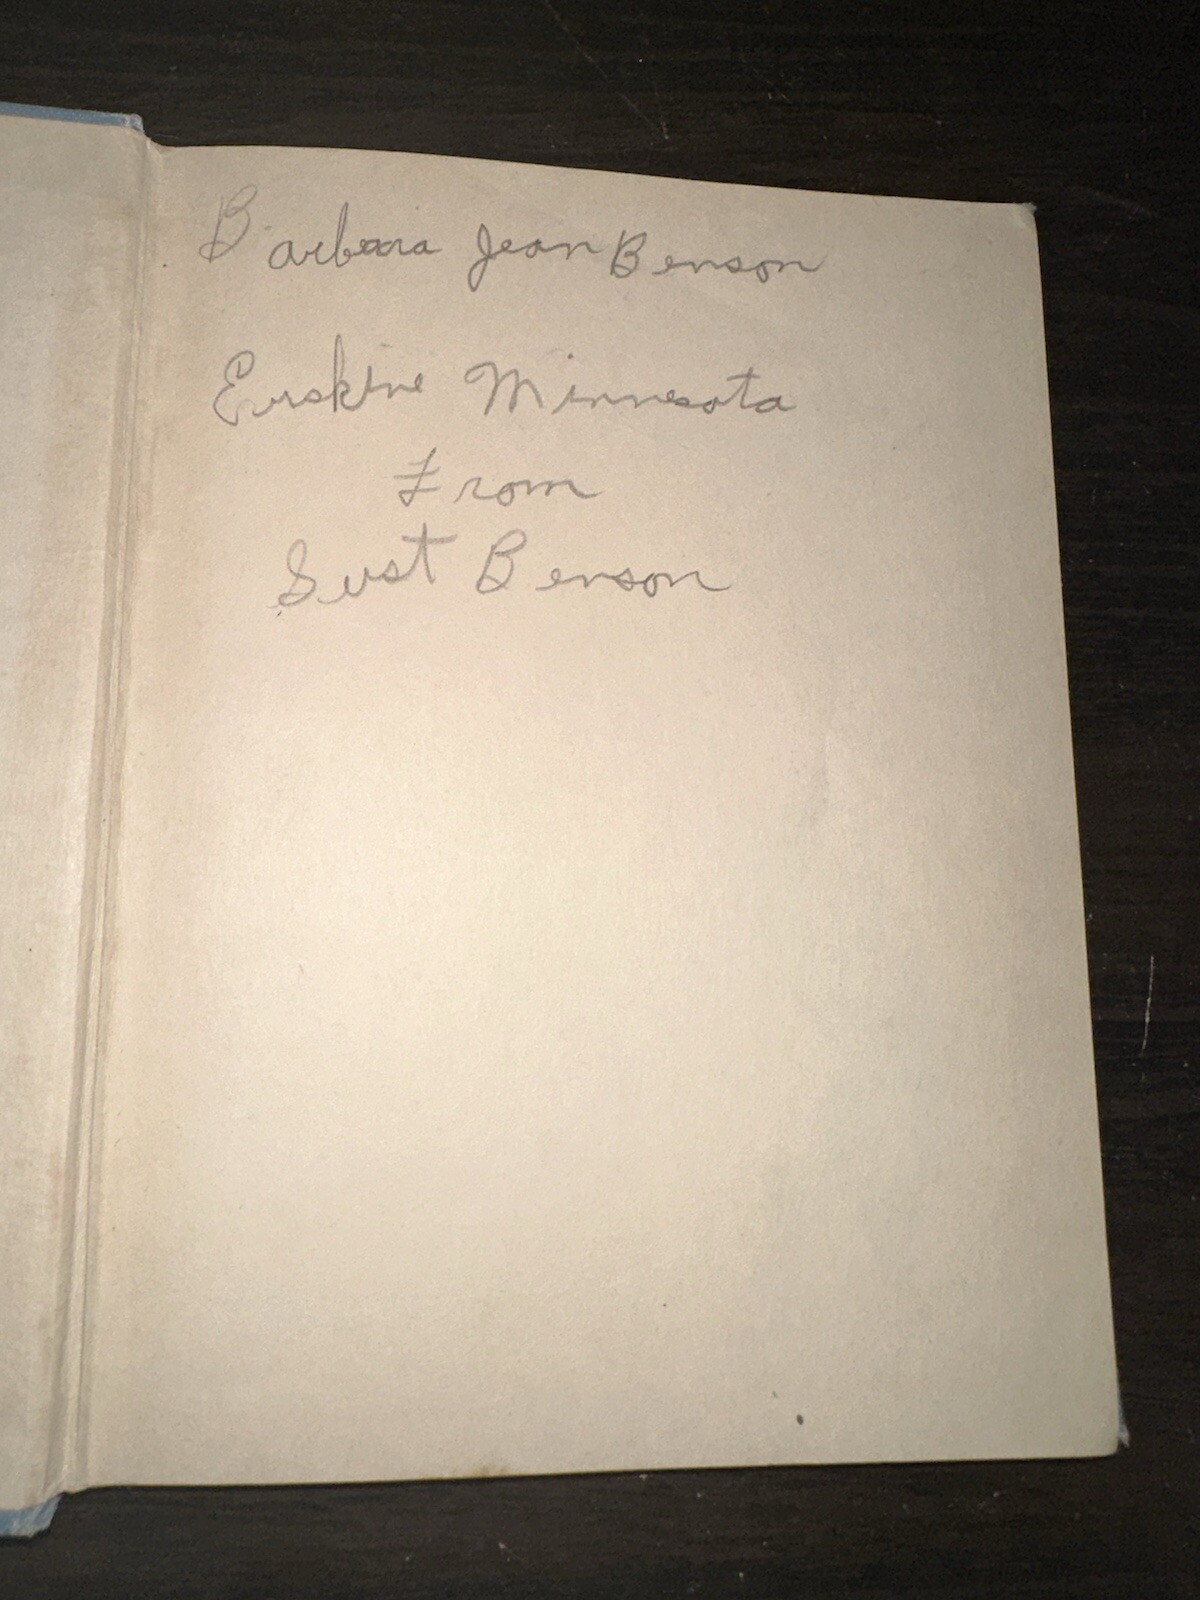 Barbara Jean Benson
Erskine Minnesota
From
Benson